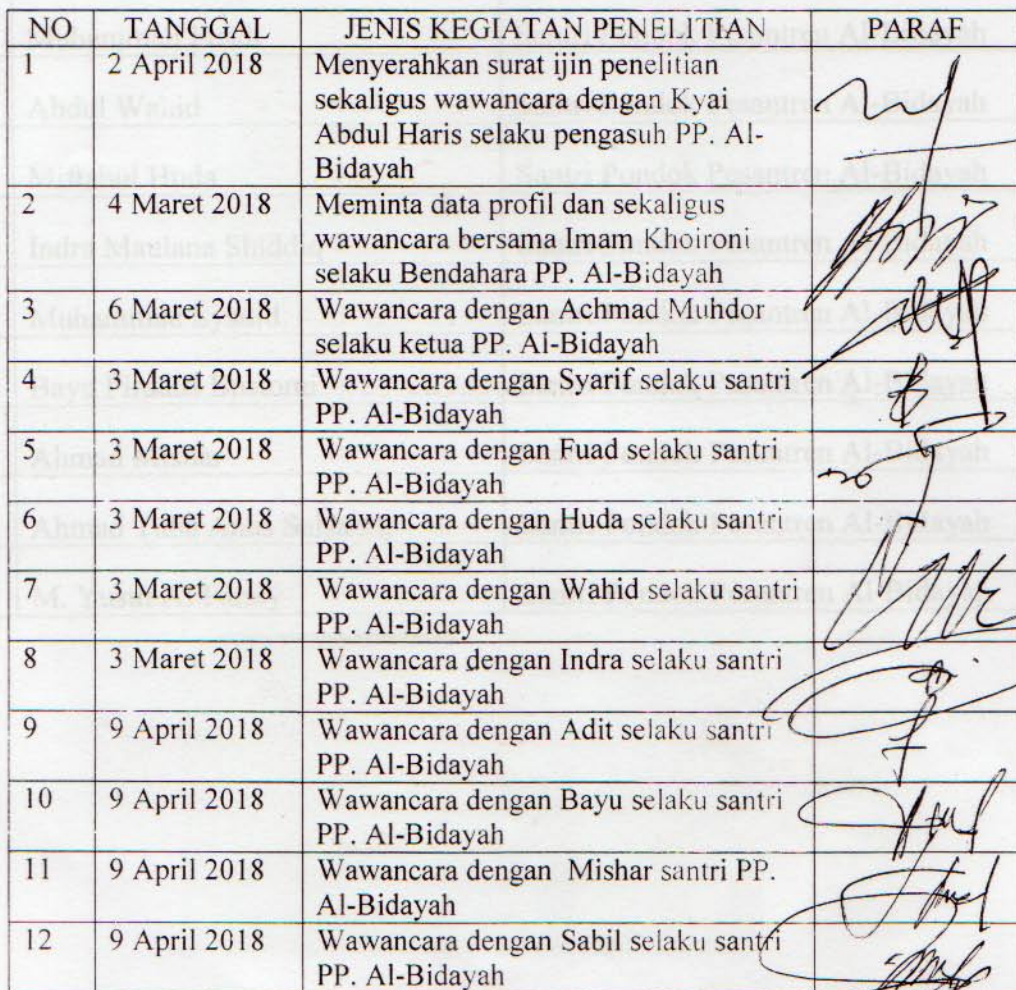 NO TANGGAL JENIS KEGIATAN PENELITIAN PARAF
1 2 April 2018 Menyerahkan surat ijin penelitian
sekaligus wawancara dengan Kyai
Abdul Haris selaku pengasuh PP. Al-
Bidayah
2 4 Maret 2018 Meminta data profil dan sekaligus
wawancara bersama Imam Khoironi
selaku Bendahara PP. Al-Bidayah
3 6 Maret 2018 Wawancara dengan Achmad Muhdor
selaku ketua PP. Al-Bidayah
4 3 Maret 2018 Wawancara dengan Syarif selaku santri
PP. Al-Bidayah
5 3 Maret 2018 Wawancara dengan Fuad selaku santri
PP. Al-Bidayah
6 3 Maret 2018 Wawancara dengan Huda selaku santri
PP. Al-Bidayah
7 3 Maret 2018 Wawancara dengan Wahid selaku santri
PP. Al-Bidayah
8 3 Maret 2018 Wawancara dengan Indra selaku santri
PP. Al-Bidayah
9 9 April 2018 Wawancara dengan Adit selaku santri
PP. Al-Bidayah
10 9 April 2018 Wawancara dengan Bayu selaku santri
PP. Al-Bidayah
11 9 April 2018 Wawancara dengan Mishar santri PP.
Al-Bidayah
12 9 April 2018 Wawancara dengan Sabil selaku santri
PP. Al-Bidayah